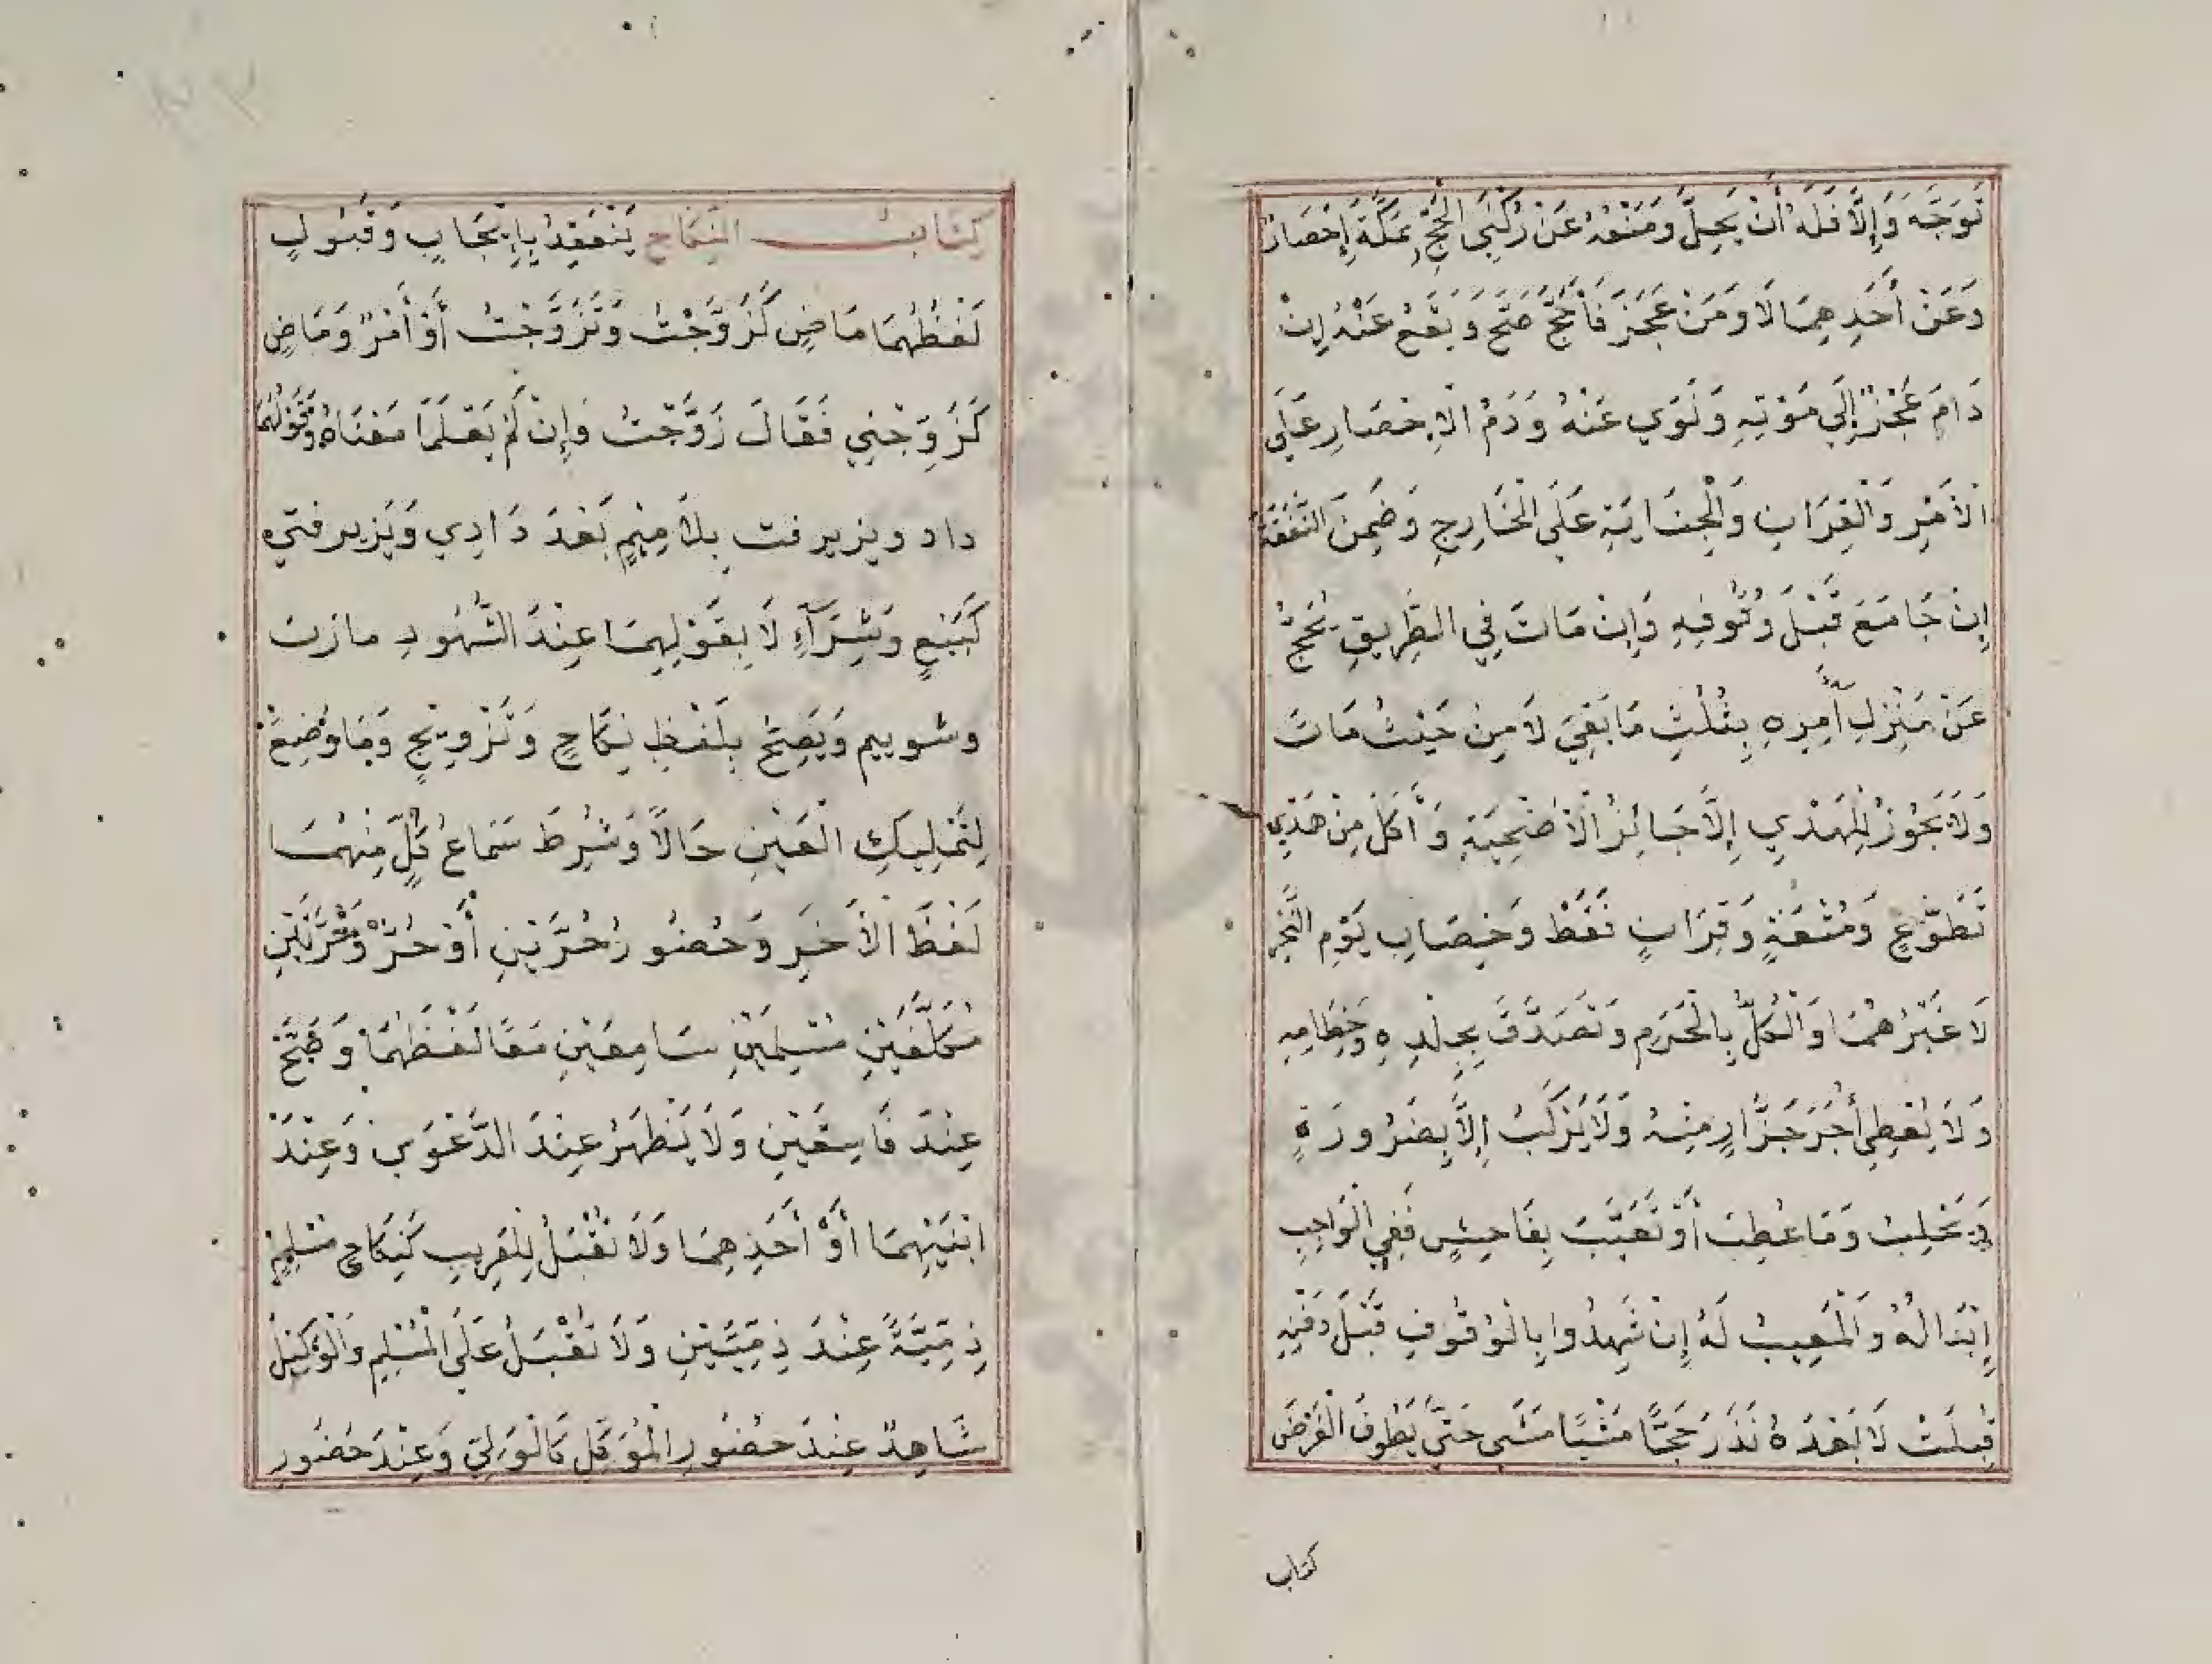 تَوَجَّهَ وَإِلَّا فَلَهُ أَنْ يَحِلَّ وَمَنْعُهُ عَنْ رُكْنَيِ الْحَجِّ بِمَكَّةَ إِحْصَارٌ
وَعَنْ أَحَدِهِمَا لَا وَمَنْ عَجَزَ فَأَحَجَّ صَحَّ وَيَقَعُ عَنْهُ إِنْ
دَامَ عَجْزُهُ إِلَي مَوْتِهِ وَنَوَي عَنْهُ وَدَمُ الْإِحْصَارِ عَلَي
الْآمِرِ وَالْقِرَانِ وَالْجِنَايَةِ عَلَى الْحَارِجِ وَضَمِنَ النَّفَقَةَ
إِنْ جَامَعَ قَبْلَ وُقُوفِهِ وَإِنْ مَاتَ فِي الطَّرِيقِ يُحَجُّ
عَنْ مَنْزِلِ آمِرِهِ بِثُلُثِ مَا بَقِيَ لَا مِنْ حَيْثُ مَاتَ
وَلَا يَجُوزُ لِلْهَدْيِ إِلَّا جَائِزُ الْأُضْحِيَةِ وَأَكَلَ مِنْ هَدْيِ
تَطَوُّعٍ وَمُتْعَةٍ وَقِرَانٍ فَقَطْ وَخِصَابِ يَوْمِ النَّحْرِ
لَا غَيْرُهُمَا وَالْكُلُّ بِالْحَرَمِ وَتَصَدَّقَ بِجِلْدِهِ وَخِطَامِهِ
وَلَا يُعْطِي أَجْرَ جَزَّارٍ مِنْهُ وَلَا يَرْكَبُ إِلَّا بِضَرُورَةٍ
يَحْلِبُ وَمَا عَطِبَ أَوْ تَعَيَّبَ بِفَاحِشٍ فَفِي الْوَاجِبِ
إِبْدَالُهُ وَالْمَعِيبُ لَهُ إِنْ شَهِدُوا بِالْوُقُوفِ قَبْلَ وَقْتِهِ
قُبِلَتْ لَا بَعْدَهُ نَذَرَ حَجًّا مَشْيًا مَشَى حَتَّي يَطُوفَ الْفَرْضَ
كتاب
كِتَابُ النِّكَاحِ يَنْعَقِدُ بِإِيْجَابٍ وَقَبُولٍ
لَفْظُهُمَا مَاضٍ كَزَوَّجْتُ وَتَزَوَّجْتُ أَوْ أَمْرٌ وَمَاضٍ
كَزَوِّجْنِي فَقَالَ زَوَّجْتُ وَإِنْ لَمْ يَعْلَمَا مَعْنَاهُ وَقَوْلُهُمَا
داد ويزيرفت بِلَا مِيْمٍ بَعْدَ دَادِي وَيَزيرفتي
كَبَيْعٍ وَشِرَآءٍ لَا بِقَوْلِهِمَا عِنْدَ الشُّهُودِ مازن
وشوييم وَيَصِحُّ بِلَفْظِ نِكَاحٍ وَتَزْوِيْجٍ وَمَا وُضِعَ
لِتَمْلِيكِ الْعَيْنِ حَالًا وَشُرِطَ سَمَاعُ كُلٍّ مِنْهُمَا
لَفْظَ الْآخَرِ وَحُضُورُ حُرَّيْنِ أَوْ حُرٍّ وَحُرَّتَيْنِ
مُكَلَّفَيْنِ مُسْلِمَيْنِ سَامِعَيْنِ مَعًا لَفْظَهُمَا وَصَحَّ
عِنْدَ فَاسِقَيْنِ وَلَا يَظْهَرُ عِنْدَ الدَّعْوَي وَعِنْدَ
ابْنَيْهِمَا أَوْ أَحَدِهِمَا وَلَا تُقْبَلُ لِلْقَرِيبِ كَنِكَاحِ مُسْلِمٍ
ذِمِّيَّةً عِنْدَ ذِمِّيَّيْنِ وَلَا تُقْبَلُ عَلَى الْمُسْلِمِ وَالْوَكِيْلُ
شَاهِدٌ عِنْدَ حُضُورِ الْمُوَكِّلِ كَالْوَلِيِّ وَعِنْدَ حُضُورِ